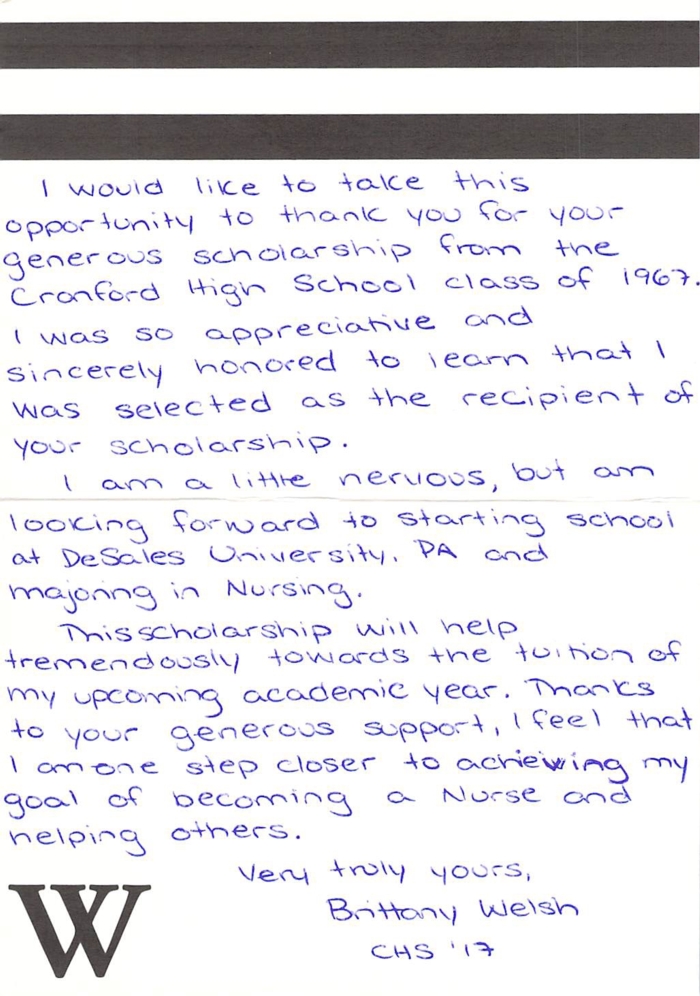 I would like to take this
opportunity to thank you for your
generous scholarship from the
Cranford High School class of 1967.
I was so appreciative and
sincerely honored to learn that I
was selected as the recipient of
your scholarship.
I am a little nervous, but am
looking forward to starting school
at DeSales University, PA and
majoring in Nursing.
This scholarship will help
tremendously towards the tuition of
my upcoming academic year. Thanks
to your generous support, I feel that
I am one step closer to achieving my
goal of becoming a Nurse and
helping others.
Very truly yours,
Brittany Welsh
CHS '17
W